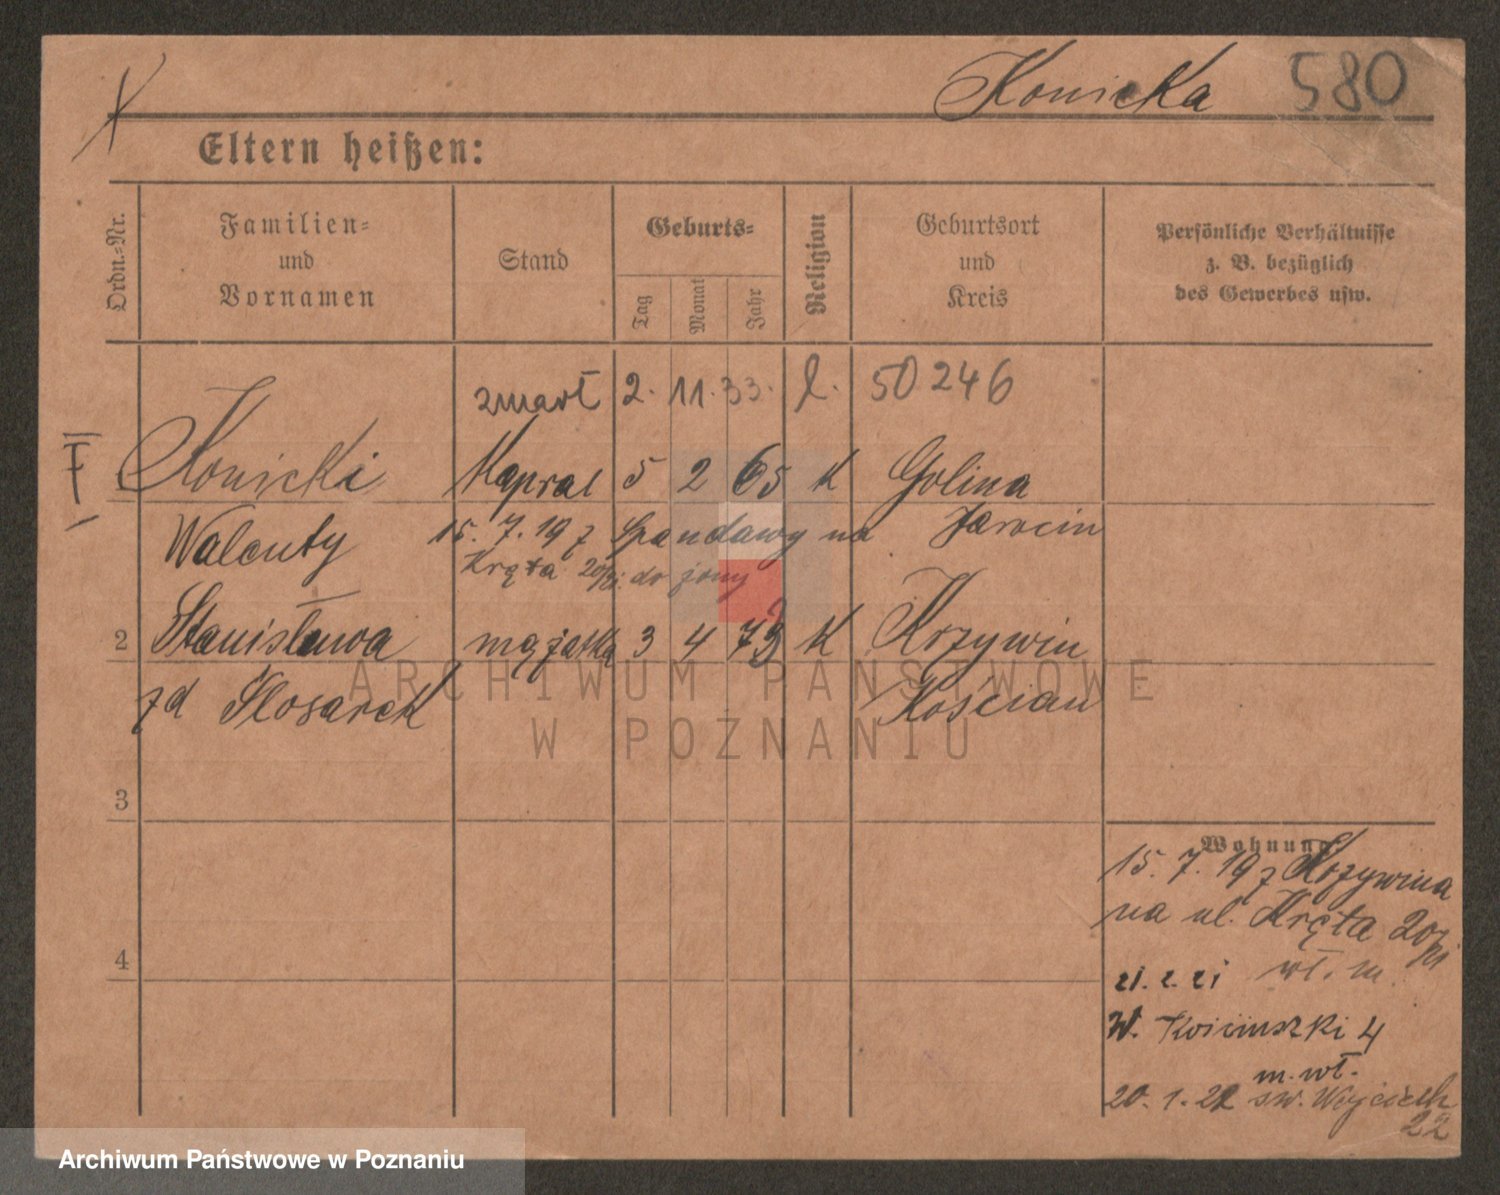 Konicka 580
Eltern heißen:
Ordn.-Nr.
Familien-
und
Vornamen
Stand
Geburts-
Tag
Monat
Jahr
Religion
Geburtsort
und
Kreis
Persönliche Verhältnisse
z. B. bezüglich
des Gewerbes usw.
zmarł 2. 11. 33. l. 50246
Konicki Kapral 5 2 65 K Golina
Walenty 15. 7. 19 z Spandawy na Jarocin
Kręta 20 do żony
2 Stanisława mężatka 3 4 73 K Krzywin
zd Slosarek Kościan
3
4
Wohnung
15. 7. 19 z Krzywina
na ul. Kręta 20
21. 2. 21 wł. m.
W. Kościuszki 4
m. wł.
20. 1. 22 św. Wojciech
22
ARCHIWUM PAŃSTWOWE
W POZNANIU
Archiwum Państwowe w Poznaniu